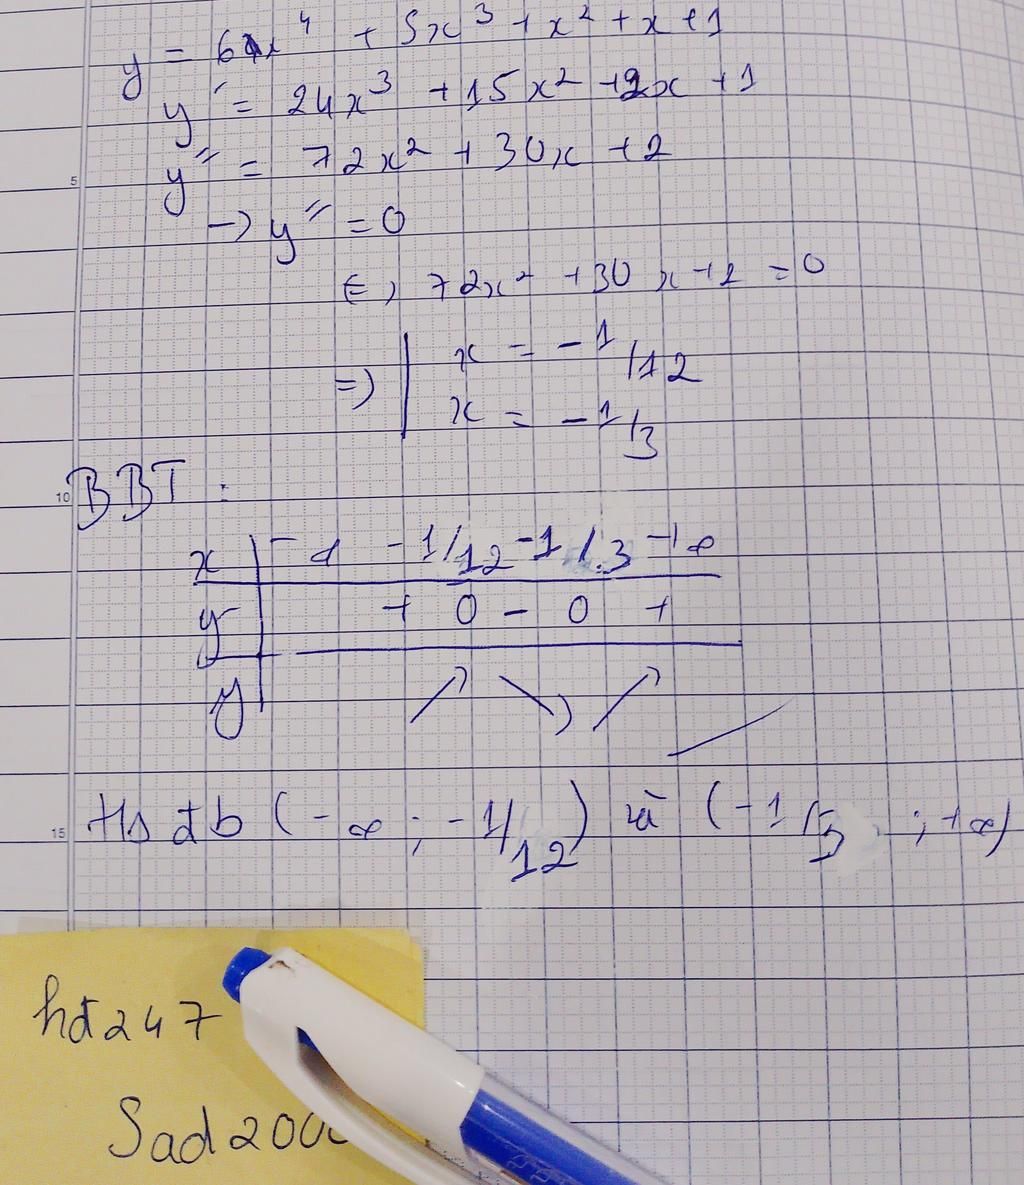 y = 6x⁴ + 5x³ + x² + x + 1
y' = 24x³ + 15x² + 2x + 1
y'' = 72x² + 30x + 2
5
→ y'' = 0
⇔ 72x² + 30x + 2 = 0
⇒ | x = -1/12
x = -1/3
10
BBT :
x | -∞ -1/12 -1/3 +∞
y' | + 0 - 0 +
y | ↗ ↘ ↗
15
Hs đb (-∞ ; -1/12) và (-1/3 ; +∞)
hđ247
Sad200